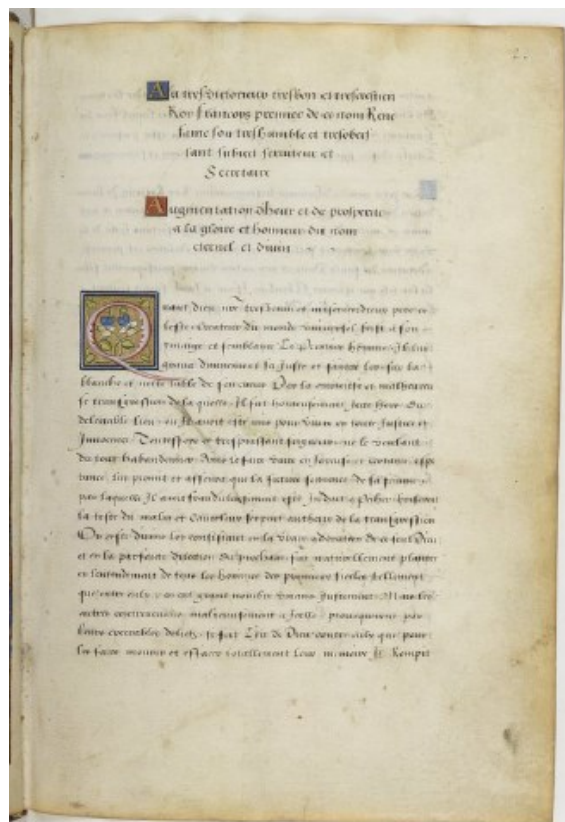 Au tresvictorieux tresbon et trescrestien
Roy francoys premier de ce nom Rene
fame son treshumble et tresobeis
sant subiect serviteur et
Secretaire
Augmentation dheur et de prosperite
a la gloire et honneur du nom
eternel et divin
Quant dieu nre trespuissant et misericordieux pere ce
leste Createur du monde universel feist a son
ymaige et semblance Le Premier homme Il luy
grava divinement sa Juste et saincte Loy sur la
blanche et necte table de son cueur Par la
se transgression de laquelle Il fut honteusement Jecte hors du
delectable lieu ou Il avoit este mis pour vivre en toute Justice et
Innocence Toutesfoys ce trespuissant seigneur ne le voulant
du tout habandonner Ains le faire vivre en et certaine espe
rance luy promit et asseura que la future semence de la femme
par laquelle Il avoit frauduleusement este Induict a pecher
la teste du maling et Cauteleux serpent autheur de la transgression
Or ceste divine Loy consistant en la vraye adoration de ce seul Dieu
et en la parfaicte dilection du prochain fut naturellement plantee
en lentendement de tous les hommes des premiers siecles tellement
que entre eulx en cest grand nombre Justement Mais les
autres contrevenans malheureusement a Icelle provoquerent par
leurs execrables delictz si fort Lire de Dieu contre eulx que pour
les faire mourir et effacer totallement leur memoire Il Rompit